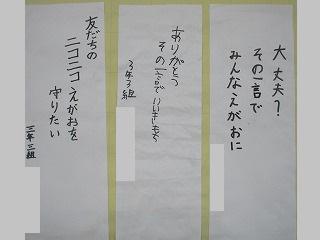 大丈夫?
その一言で
みんなえがおに
ありがとう
その一言でいいきもち
3年3組
友だちの
ニコニコえがおを
守りたい
三年三組